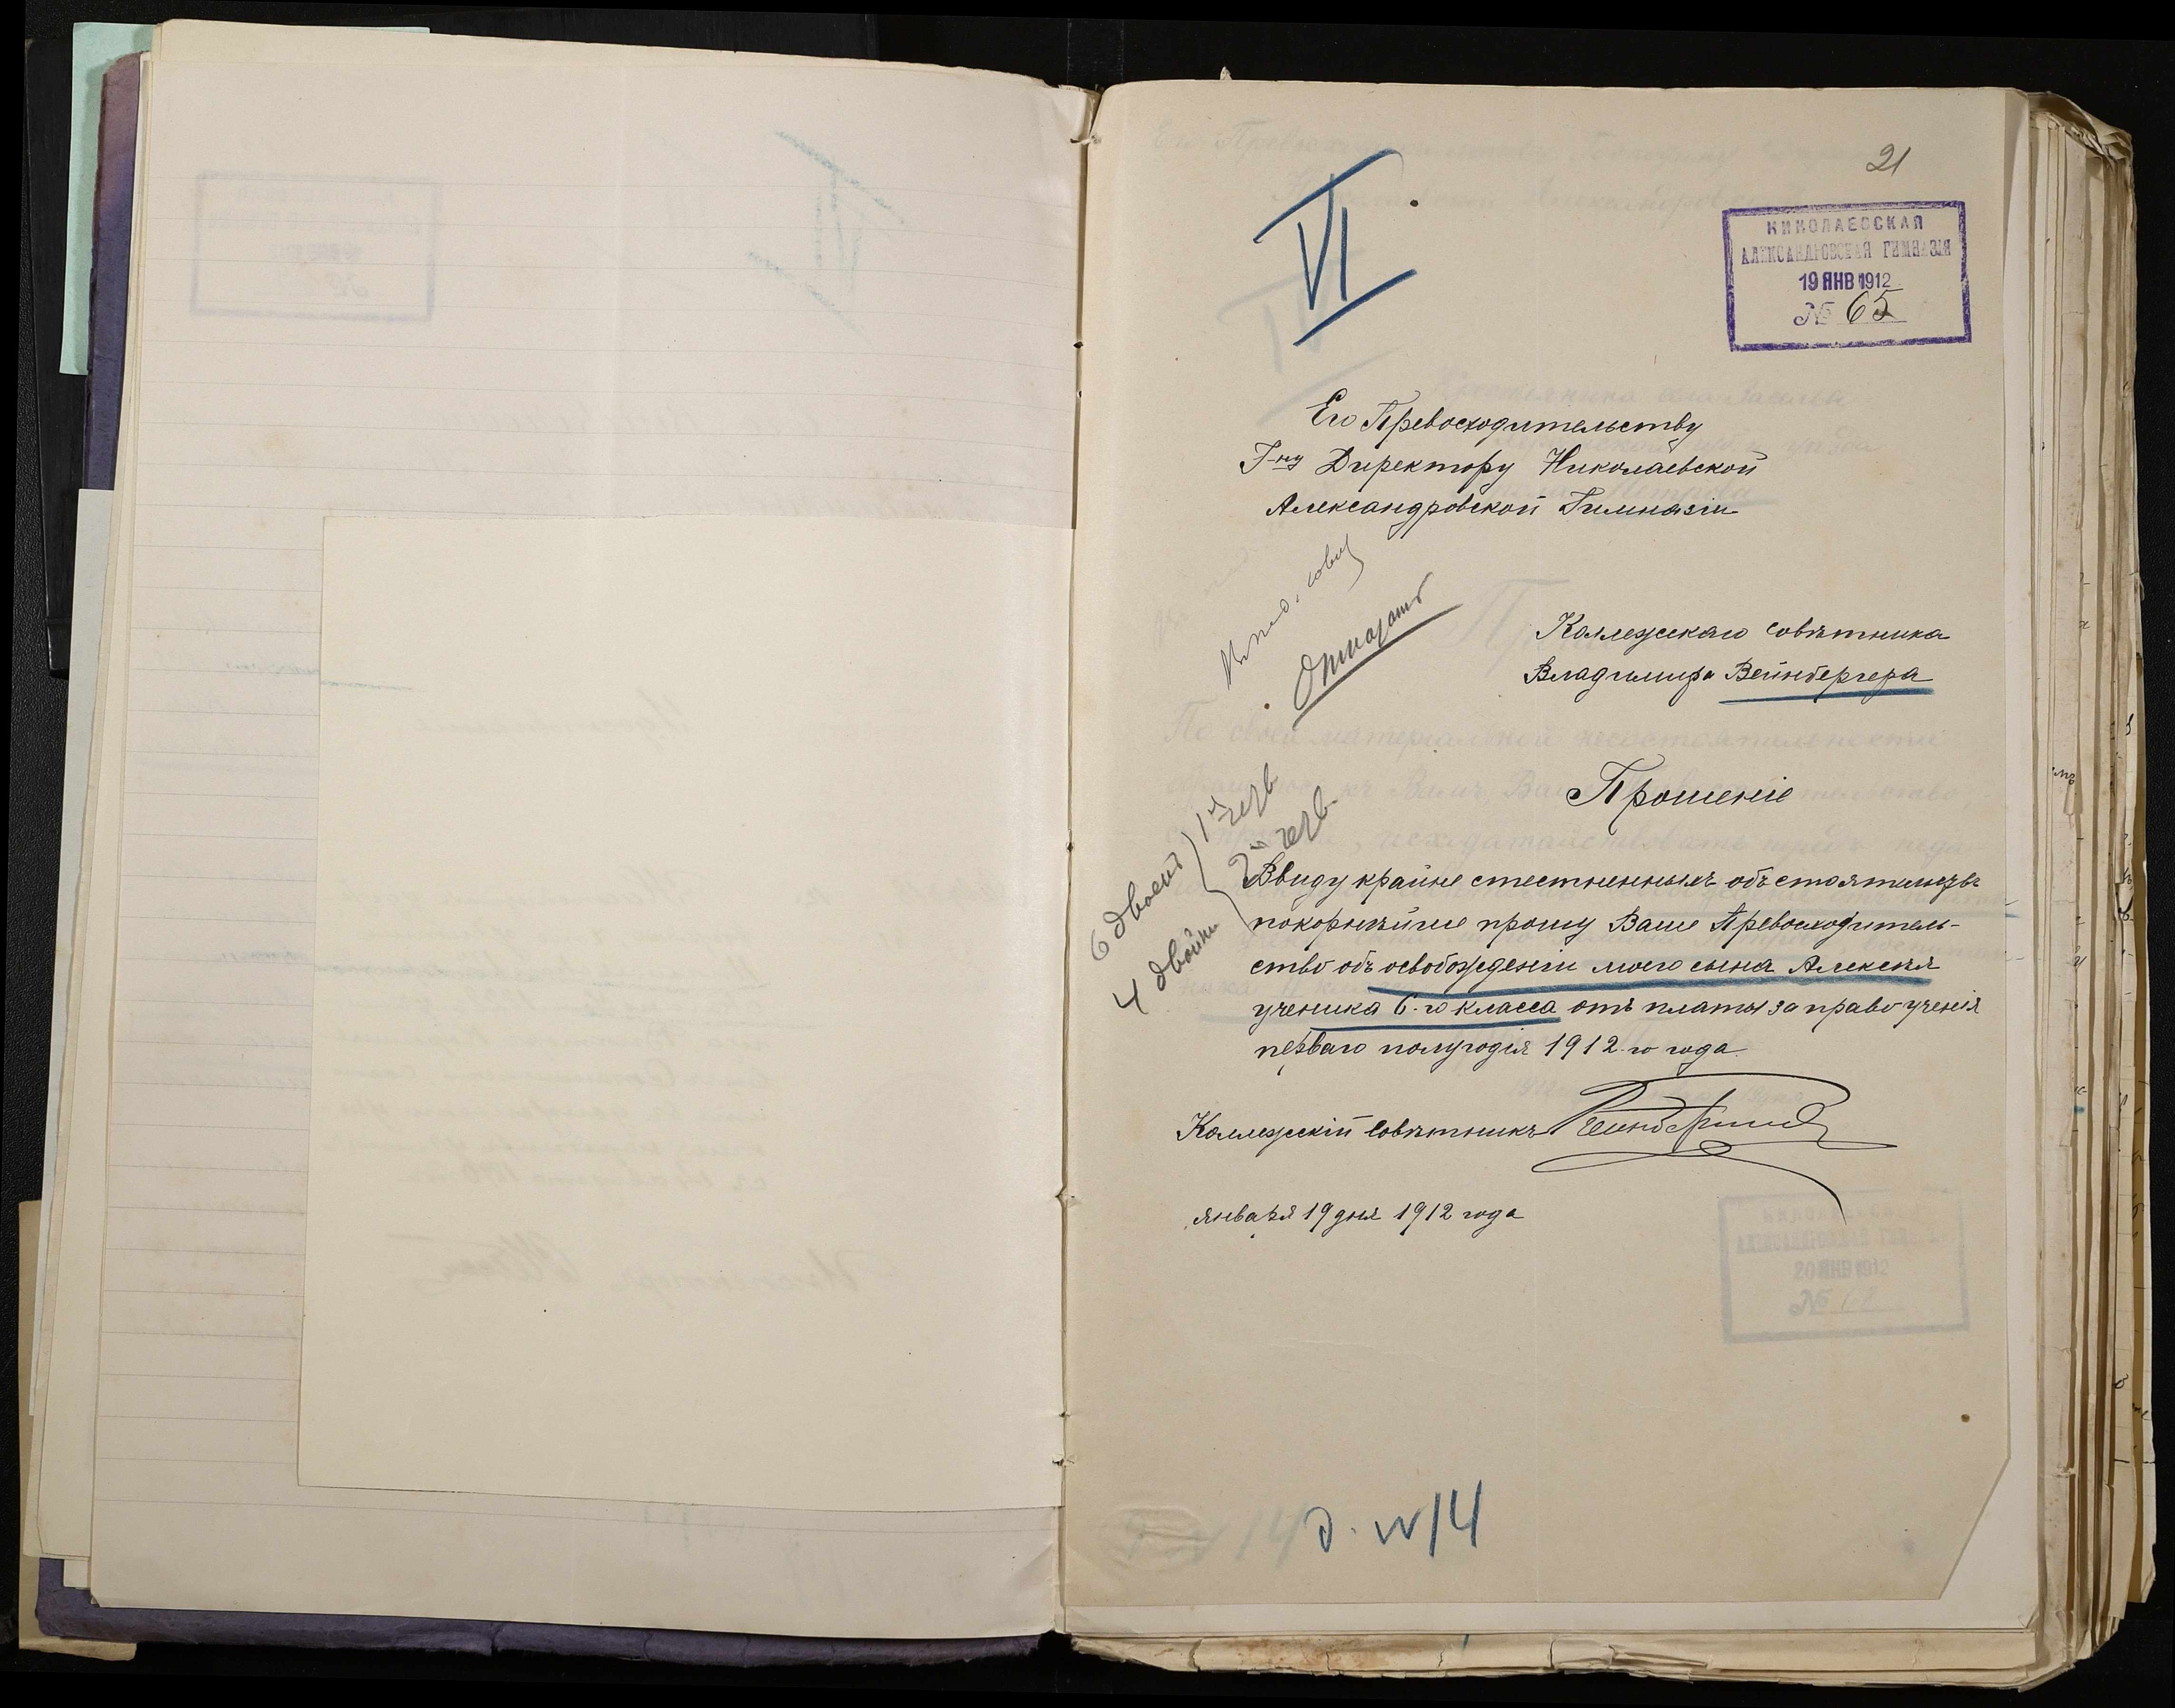 21
VI
НИКОЛАЕВСКАЯ
АЛЕКСАНДРОВСКАЯ ГИМНАЗІЯ
19 ЯНВ 1912
№ 65
Его Превосходительству
Г-ну Директору Николаевской
Александровской Гимназіи
Отказать
Коллежскаго совѣтника
Владимира Вейнбергера
Прошеніе
6 двоекъ 1я четв
4 двойки 2я четв.
Ввиду крайне стесненныхъ обстоятельствъ
покорнѣйше прошу Ваше Превосходитель-
ство объ освобожденіи моего сына Алексѣя
ученика 6-го класса отъ платы за право ученія
перваго полугодія 1912-го года.
Коллежскій Совѣтникъ
января 19 дня 1912 года
НИКОЛАЕВСКАЯ
АЛЕКСАНДРОВСКАЯ
20 ЯНВ 1912
№
д. №14